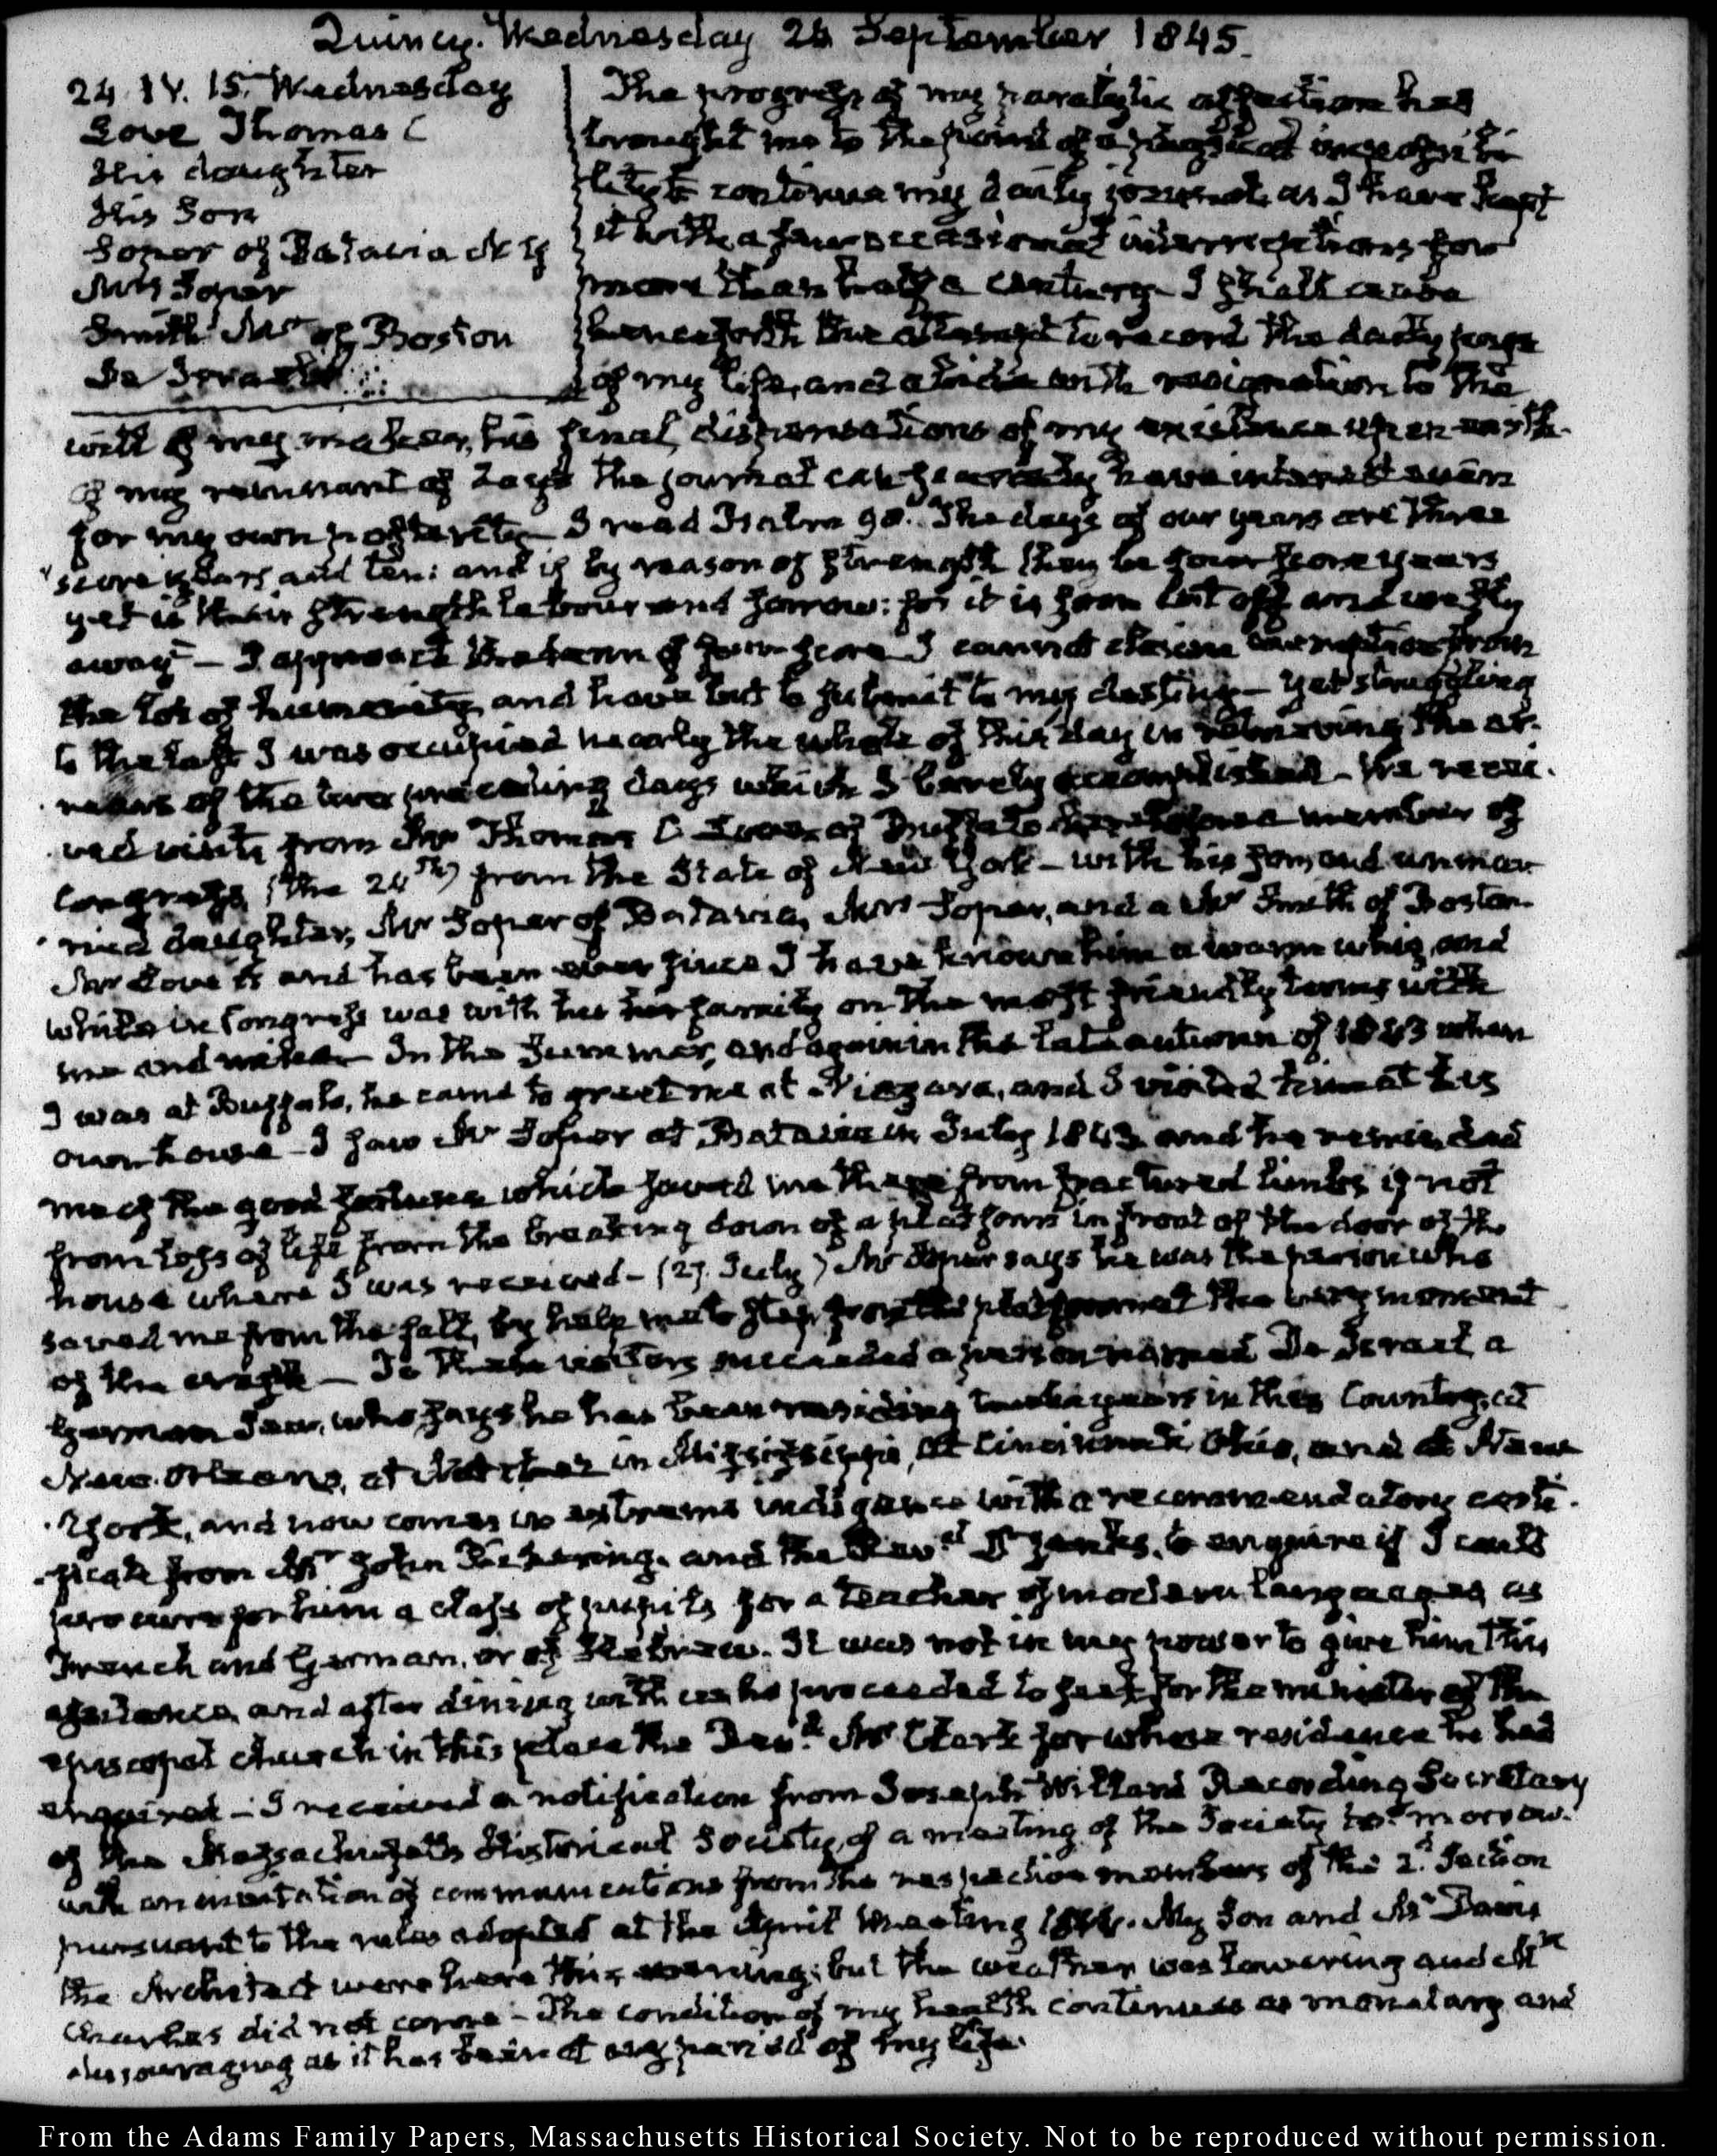 Quincy. Wednesday 24 September 1845.
24. IV. 15. Wednesday
Love Thomas C
His daughter
His Son
Soper of Batavia N Y
Mrs Soper
Smith Mr of Boston
De Israel
The progress of my paralytic affection has
brought me to the point of a physical impossibi-
lity to continue my daily journal, as I have kept
it with a few occasional interruptions for
more than half a century. I shall cease
henceforth the attempt to record the daily
of my life, and abide with resignation to the
will of my maker, his final dispensations of my existence when
of my remnant of days the journal can scarcely have interest even
for my own posterity. I read Psalm 90. "The days of our years are three
"score years and ten: and if by reason of strength they be four score years
yet is their strength labour and sorrow: for it is soon cut off and we fly
away" — I approach the term of four score I cannot claim exemption from
the lot of humanity, and have but to submit to my destiny — yet struggling
to the last I was occupied nearly the whole of this day in retrieving the ar-
rears of the two preceding days which I barely accomplished — We recei-
ved visits from Mr Thomas C Love of Buffalo heretofore a member of
Congress, (the 24th) from the State of New York — with his son, and unmar-
ried daughter, Mr Soper of Batavia, Mrs Soper, and a Mr Smith of Boston.
Mr Love is and has been ever since I have known him a warm whig, and
while in Congress was with his family on the most friendly terms with
me and mine. In the Summer, and again in the late autumn of 1843 when
I was at Buffalo, he came to greet me at Niagara, and I visited him at his
own house — I saw Mr Soper at Batavia in July 1843 and he reminded
me of the good fortune which saved me there from fractured limbs if not
from loss of life from the breaking down of a platform in front of the door of the
house where I was received — (27. July) Mr Soper says he was the person who
saved me from the fall, by help me to step from the platform at the very moment
of the crash — To these visitors succeeded a person named De Israel a
German Jew, who says he has been residing twelve years in this Country, at
New Orleans, at Natchez in Mississippi, at Cincinnati Ohio, and at New
York, and now comes in extreme indigence with a recommendatory certi-
ficate from Mr John Pickering, and the Revd Dr Jenks, to enquire if I could
procure for him a class of pupils for a teacher of modern languages as
French and German, or of Hebrew. It was not in my power to give him this
assistance, and after dining with us he proceeded to seek for the minister of the
episcopal church in this place the Revd Mr Clark for whose residence he had
enquired — I received a notification from Joseph Willard Recording Secretary
of the Massachusetts Historical Society, of a meeting of the Society to-morrow.
with an of communications from the respective members of the 2d Section
pursuant to the rules adopted at the April meeting 1844. My Son and Mr Davis
the Architect were here this; but the weather was lowering and Mrs
Charles did not come — The condition of my health continues as monitory and
discouraging as it has been at any period of my life.
From the Adams Family Papers, Massachusetts Historical Society. Not to be reproduced without permission.